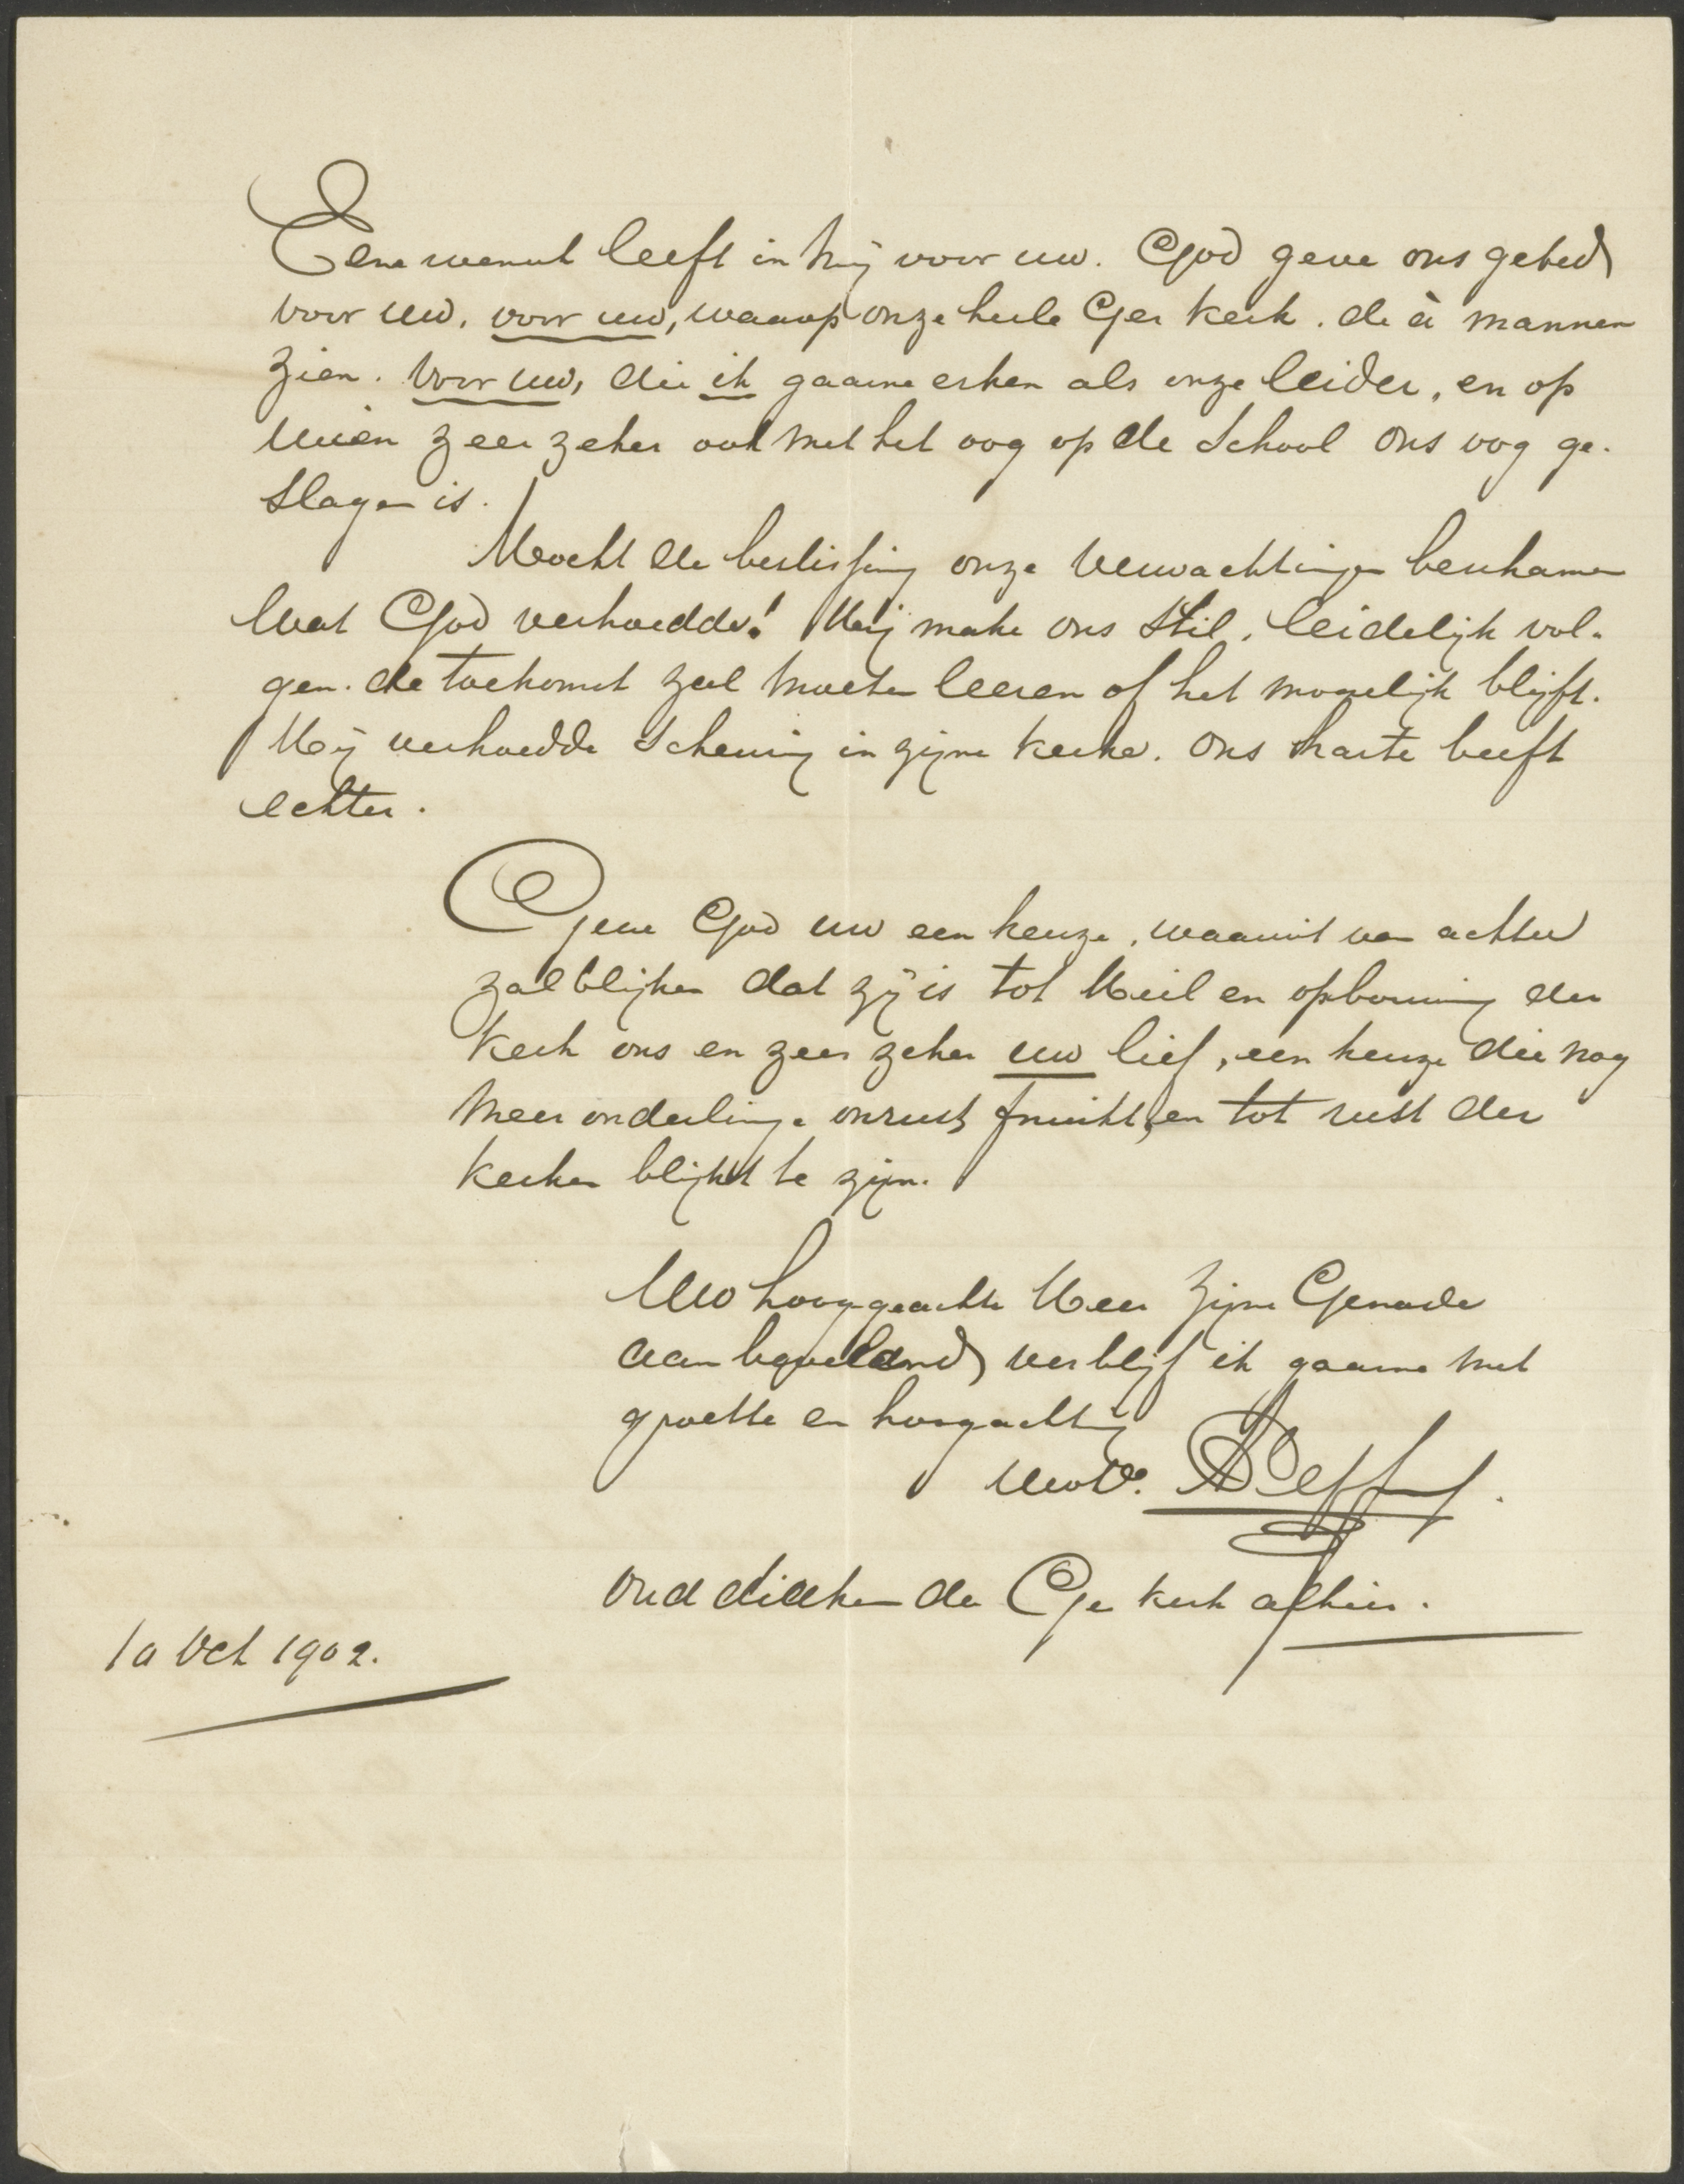 Eene wensch leeft in mij voor uw. God geve ons gebed
voor uw, voor uw, waarop onze heele Ger kerk. de à mannen
zien. Voor uw, die ik gaarne erken als onze leider, en op
wien zeer zeker ook met het oog op de School ons oog ge-
slagen is.
Mocht de beslissing onze verwachtingen beschamen
wat God verhoedde! Hij make ons stil, leidelijk vol-
gen. de toekomst zal moeten leeren of het mogelijk blijft.
Hij verhoedde scheuring in zijne kerke. Ons harte beeft
echter.
Geve God uw een keuze, waaruit van achter
zal blijken dat zij is tot Heil en opbouwing der
kerk ons en zeer zeker uw lief, een keuze die nog
meer onderlinge onrust fnuikt, en tot rust der
kerken blijkt te zijn.
Uw hooggeachte Heer Zijne Genade
aanbevelend verblijf ik gaarne met
groette en hoogachting
Uw
Oud diaken der Ge kerk alhier.
10 Oct 1902.